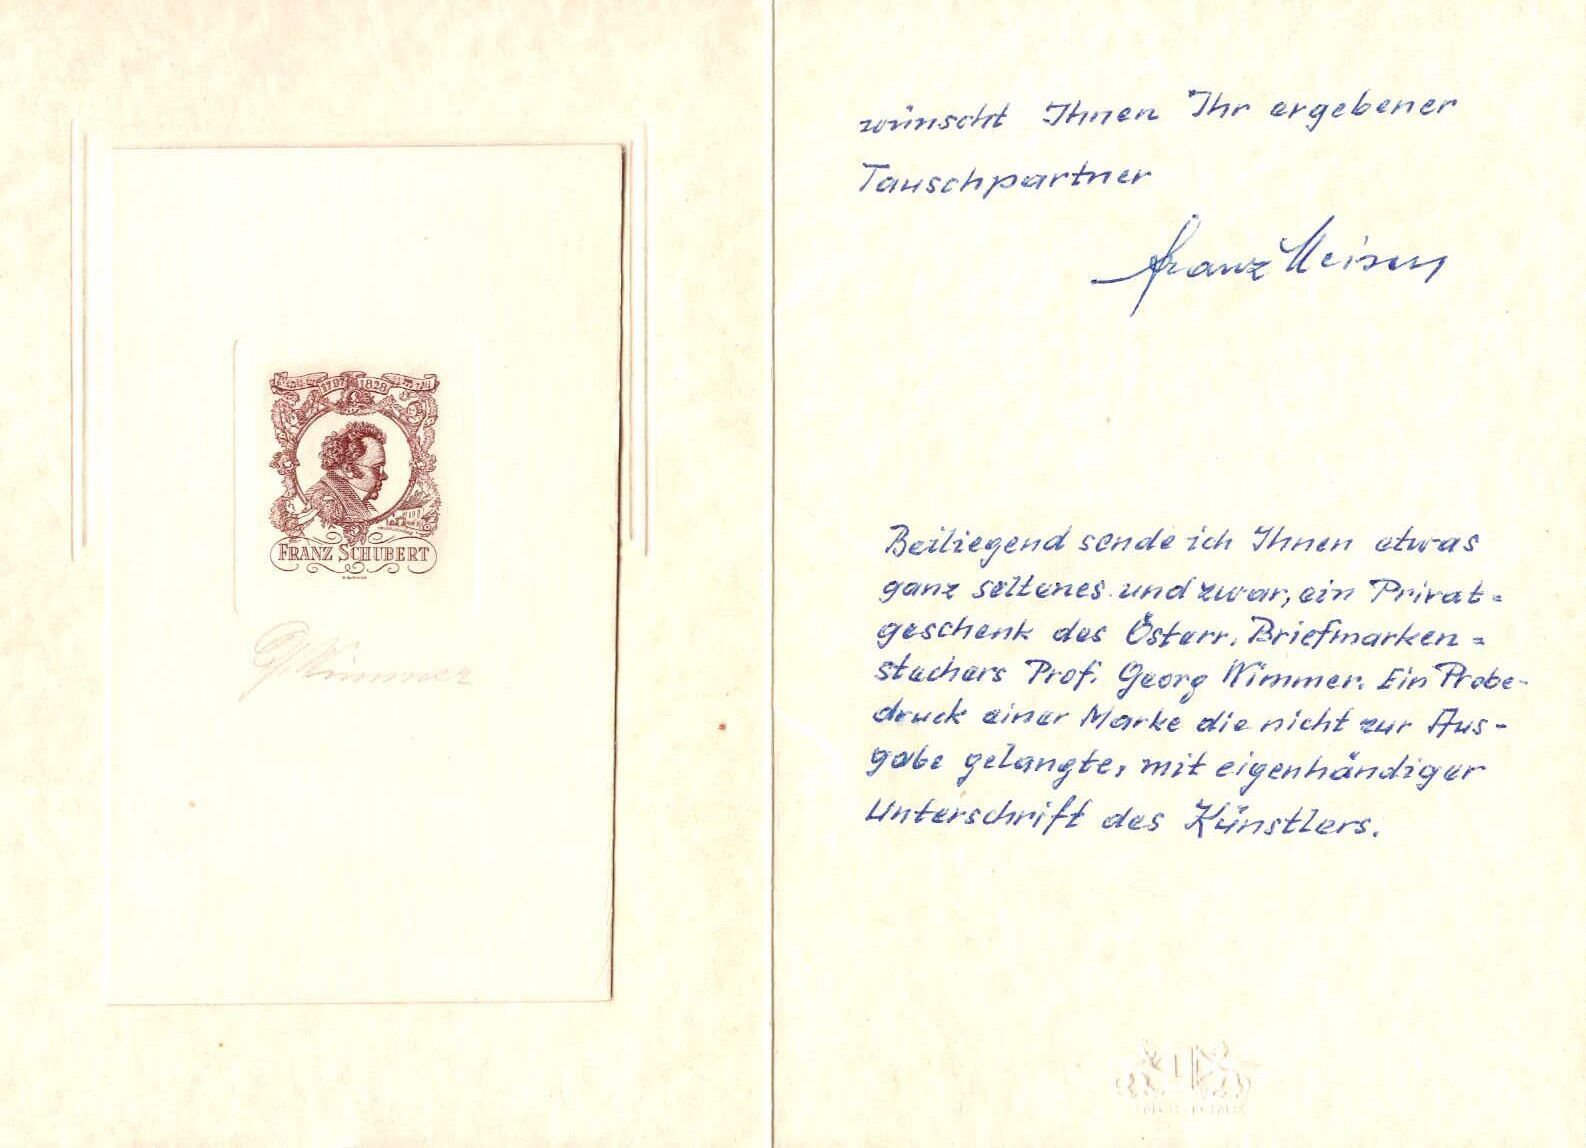 1797 1828
FRANZ SCHUBERT
G. Wimmer
wünscht Ihnen Ihr ergebener
Tauschpartner
Franz Meisen
Beiliegend sende ich Ihnen etwas
ganz seltenes und zwar, ein Privat=
geschenk des Österr. Briefmarken=
stechers Prof. Georg Wimmer. Ein Probe-
druck einer Marke die nicht zur Aus-
gabe gelangte, mit eigenhändiger
Unterschrift des Künstlers.